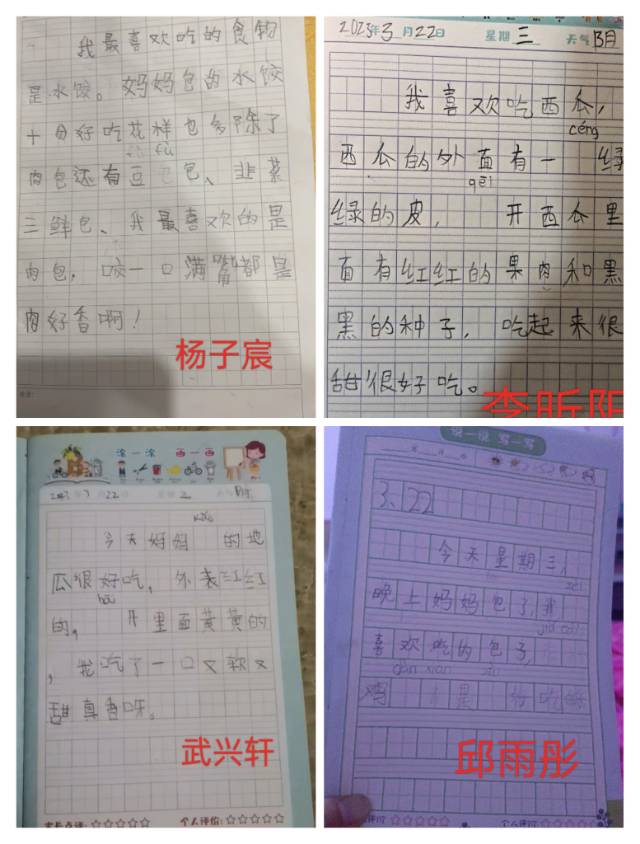 我最喜欢吃的食物
是水饺。妈妈包的水饺
十分好吃花样也多除了
肉包还有豆 包、韭菜
三鲜包、我最喜欢的是
肉包,咬一口满嘴都是
肉好香啊!
杨子宸
2023年3月22日 星期三 天气阴
我喜欢吃西瓜,
céng
西瓜的外面有一 绿
qiē
绿的皮, 开西瓜里
面有红红的果肉和黑
黑的种子,吃起来很
甜很好吃。
李昕阳
涂一涂 画一画
3月22日
今天妈妈 的地
瓜很好吃,外表红红
的, 开里面黄黄的
,我吃了一口又软又
甜真香呀。
武兴轩
个人评价:☆☆☆☆☆
说一说 写一写
3、22
今天星期三,
晚上妈妈包了我
喜欢吃的包子,
鸡 是
邱雨彤
个人评价:☆☆☆☆☆